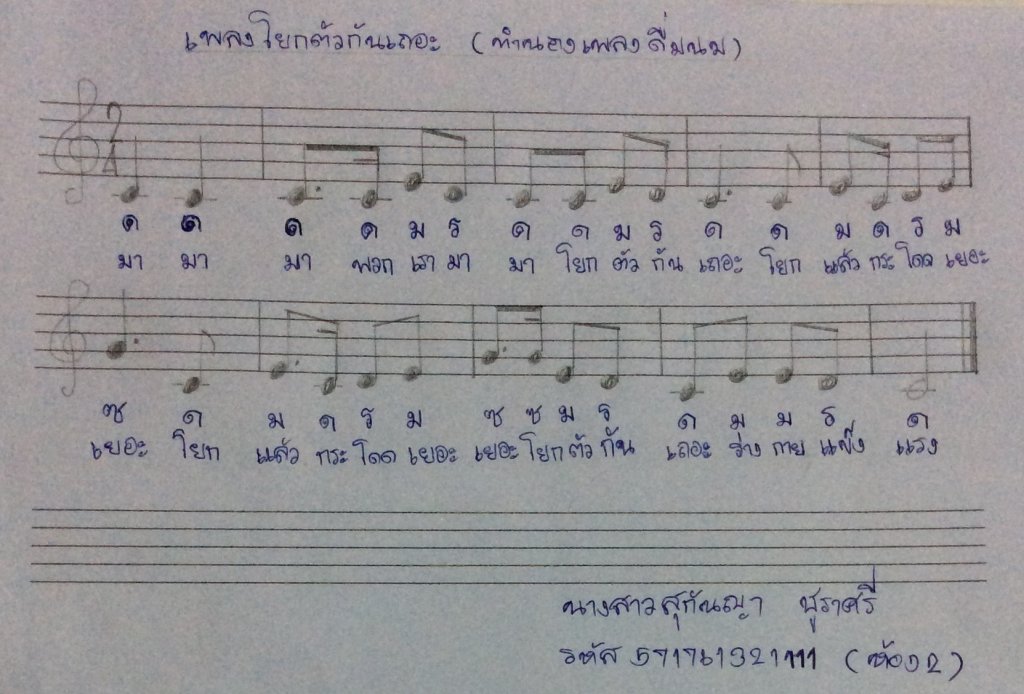 เพลงโยกตัวกันเถอะ (ทำนองเพลงดื่มนม)
2
4
ด ด ด ด ม ร ด ด ม ร ด ด ม ด ร ม
มา มา มา พวก เรา มา มา โยก ตัว กัน เถอะ โยก แล้ว กระ โดด เยอะ
ซ ด ม ด ร ม ซ ซ ม ร ด ม ม ร ด
เยอะ โยก แล้ว กระ โดด เยอะ เยอะ โยก ตัว กัน เถอะ ร่าง กาย แข็ง แรง
นางสาวสุกัญญา ชูราศรี
รหัส 571761321111 (ห้อง2)